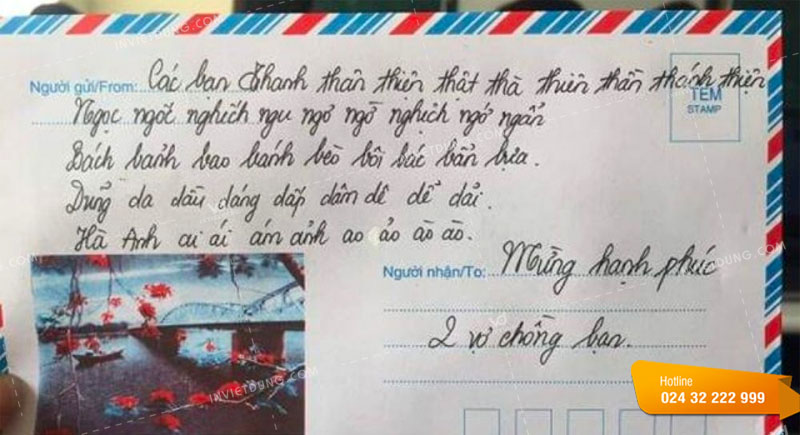 Người gửi/From: Các bạn Thanh thân thiện thật thà thiên thần thánh thiện
TEM
STAMP
Ngọc ngốt nghếch ngu ngơ ngờ nghịch ngớ ngẩn
Bách bánh bao bánh bèo bôi bác bẩn bựa.
Dung da dầu dáng dấp dâm dê dễ dãi.
Hà Anh ai ái ám ảnh ao ảo ào ào.
Người nhận/To: Mừng hạnh phúc
2 vợ chồng bạn.
Hotline
024 32 222 999
INVIETDUNG.COM